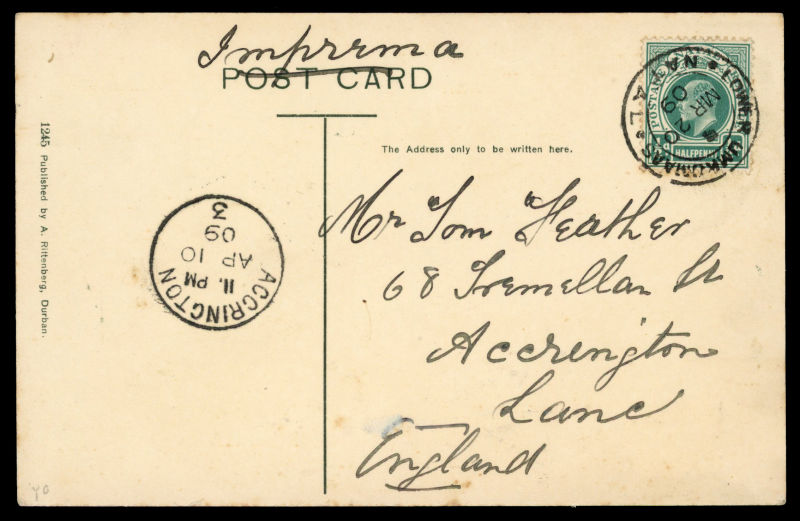 Imprrma
POST CARD
The Address only to be written here.
POSTAGE
HALFPENNY
LOWER UMKOMAAS
NATAL
MR 20
09
Mr Tom Feather
68 Tremellan St
Accrington
Lanc
England
ACCRINGTON
11. PM
AP 10
09
3
1245 Published by A. Rittenberg, Durban.
YG